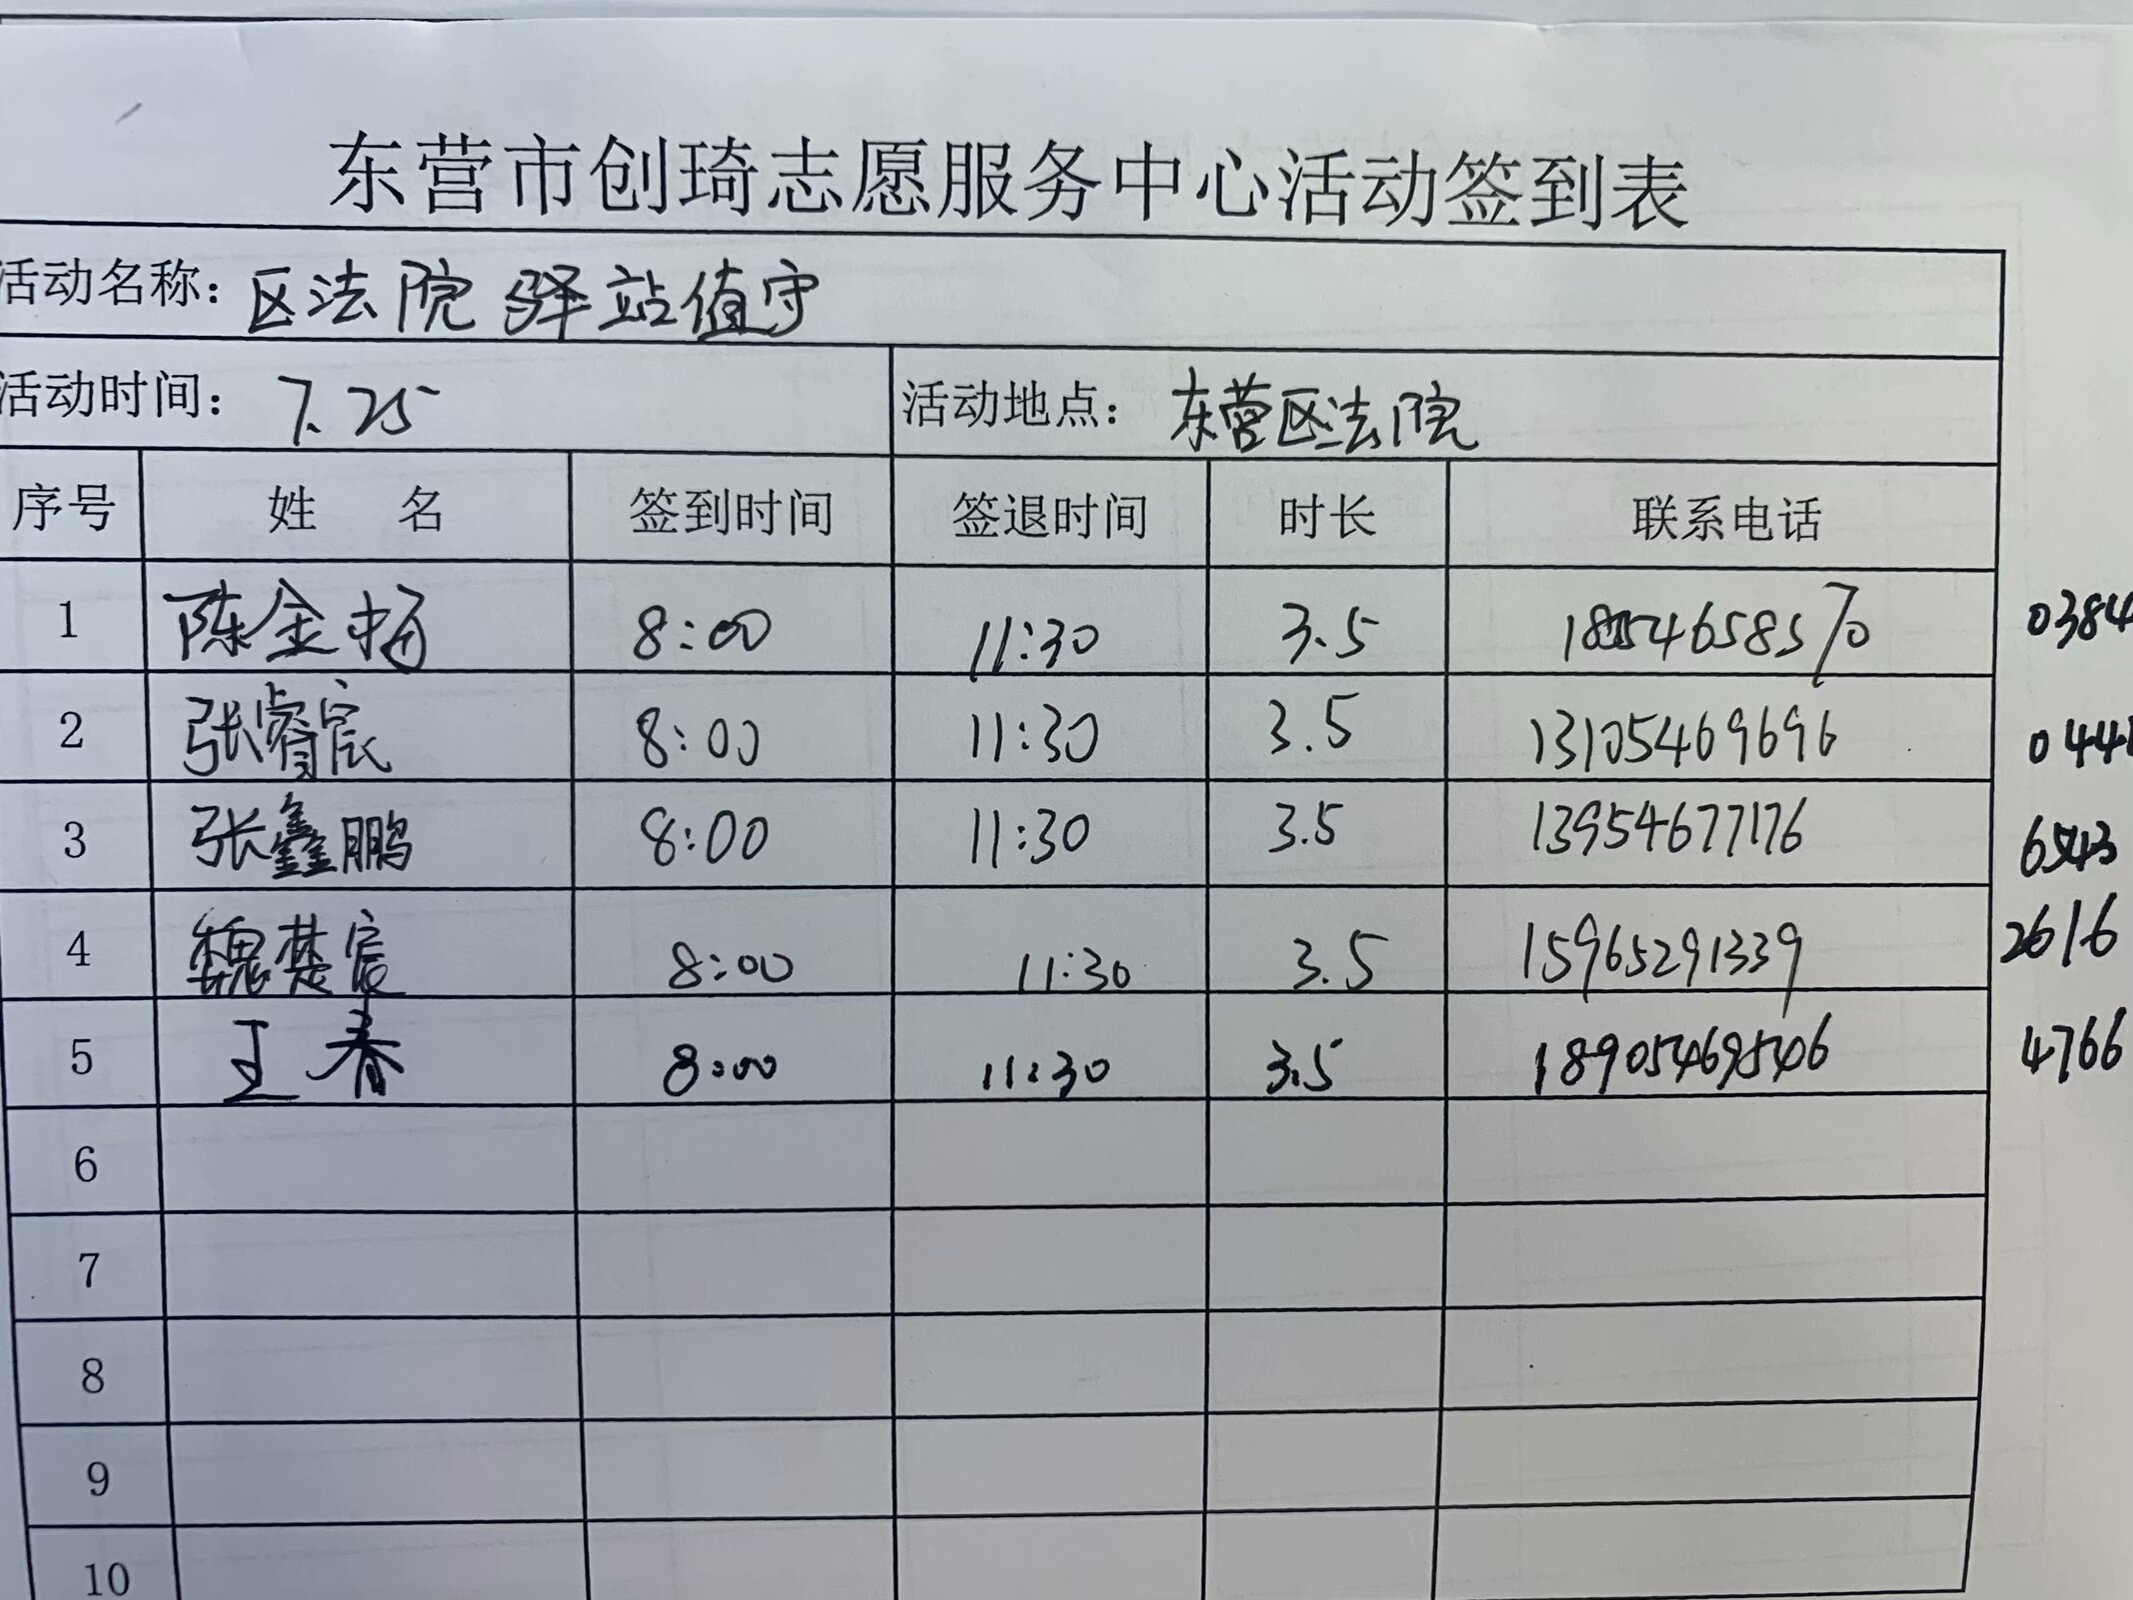 东营市创琦志愿服务中心活动签到表
活动名称：区法院驿站值守
活动时间：7.25 活动地点：东营区法院
序号 姓 名 签到时间 签退时间 时长 联系电话
1 陈金扬 8:00 11:30 3.5 18554658570 0384
2 张睿宸 8:00 11:30 3.5 13105469696 044
3 张鑫鹏 8:00 11:30 3.5 13954677176 6543
4 魏楚宸 8:00 11:30 3.5 15965291339 2616
5 王春 8:00 11:30 3.5 18905469546 4766
6
7
8
9
10